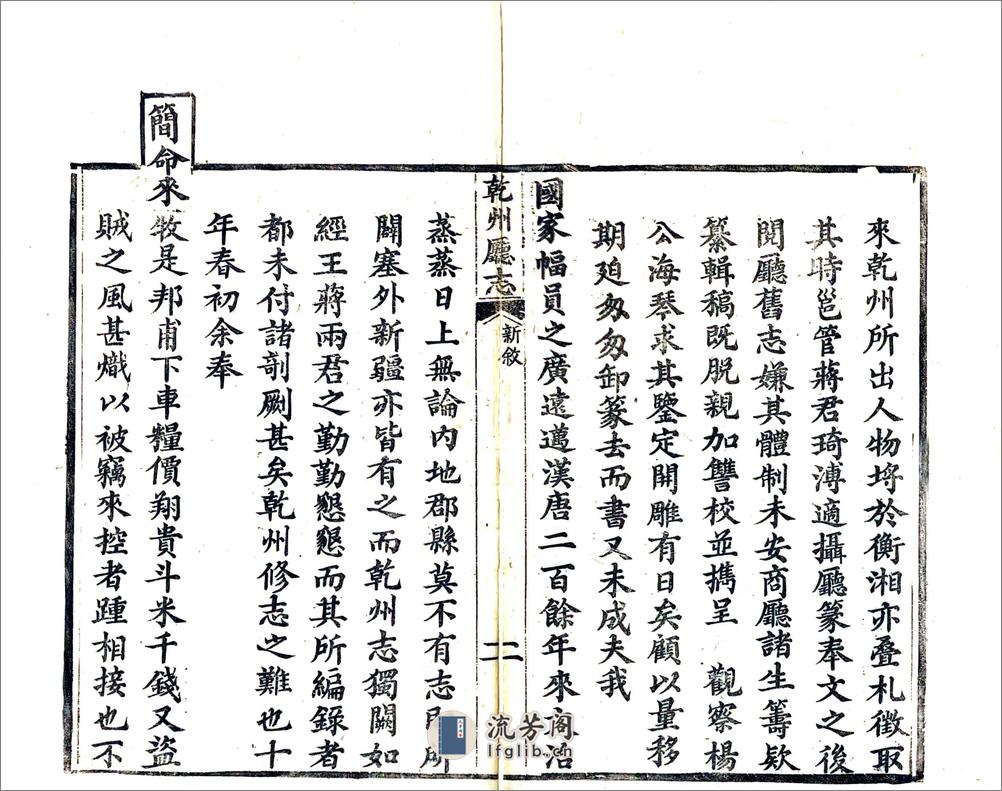 來乾州所出人物埒於衡湘亦疊札徵取
其時邕管蔣君琦溥適攝廳篆奉文之後
閱廳舊志嫌其體制未安商廳諸生籌欵
纂輯稿既脫親加讐校並攜呈 觀察楊
公海琴求其鑒定開雕有日矣顧以量移
期廹匆匆卸篆去而書又未成夫我
國家幅員之廣遠邁漢唐二百餘年來治
乾州廳志 新敘 二
蒸蒸日上無論內地郡縣莫不有志即
關塞外新疆亦皆有之而乾州志獨闕如
經王蔣兩君之勤勤懇懇而其所編錄者
都未付諸剞劂甚矣乾州修志之難也十
年春初余奉
簡命來牧是邦甫下車糧價翔貴斗米千錢又盜
賊之風甚熾以被竊來控者踵相接也不
流芳阁
lfglib.cn